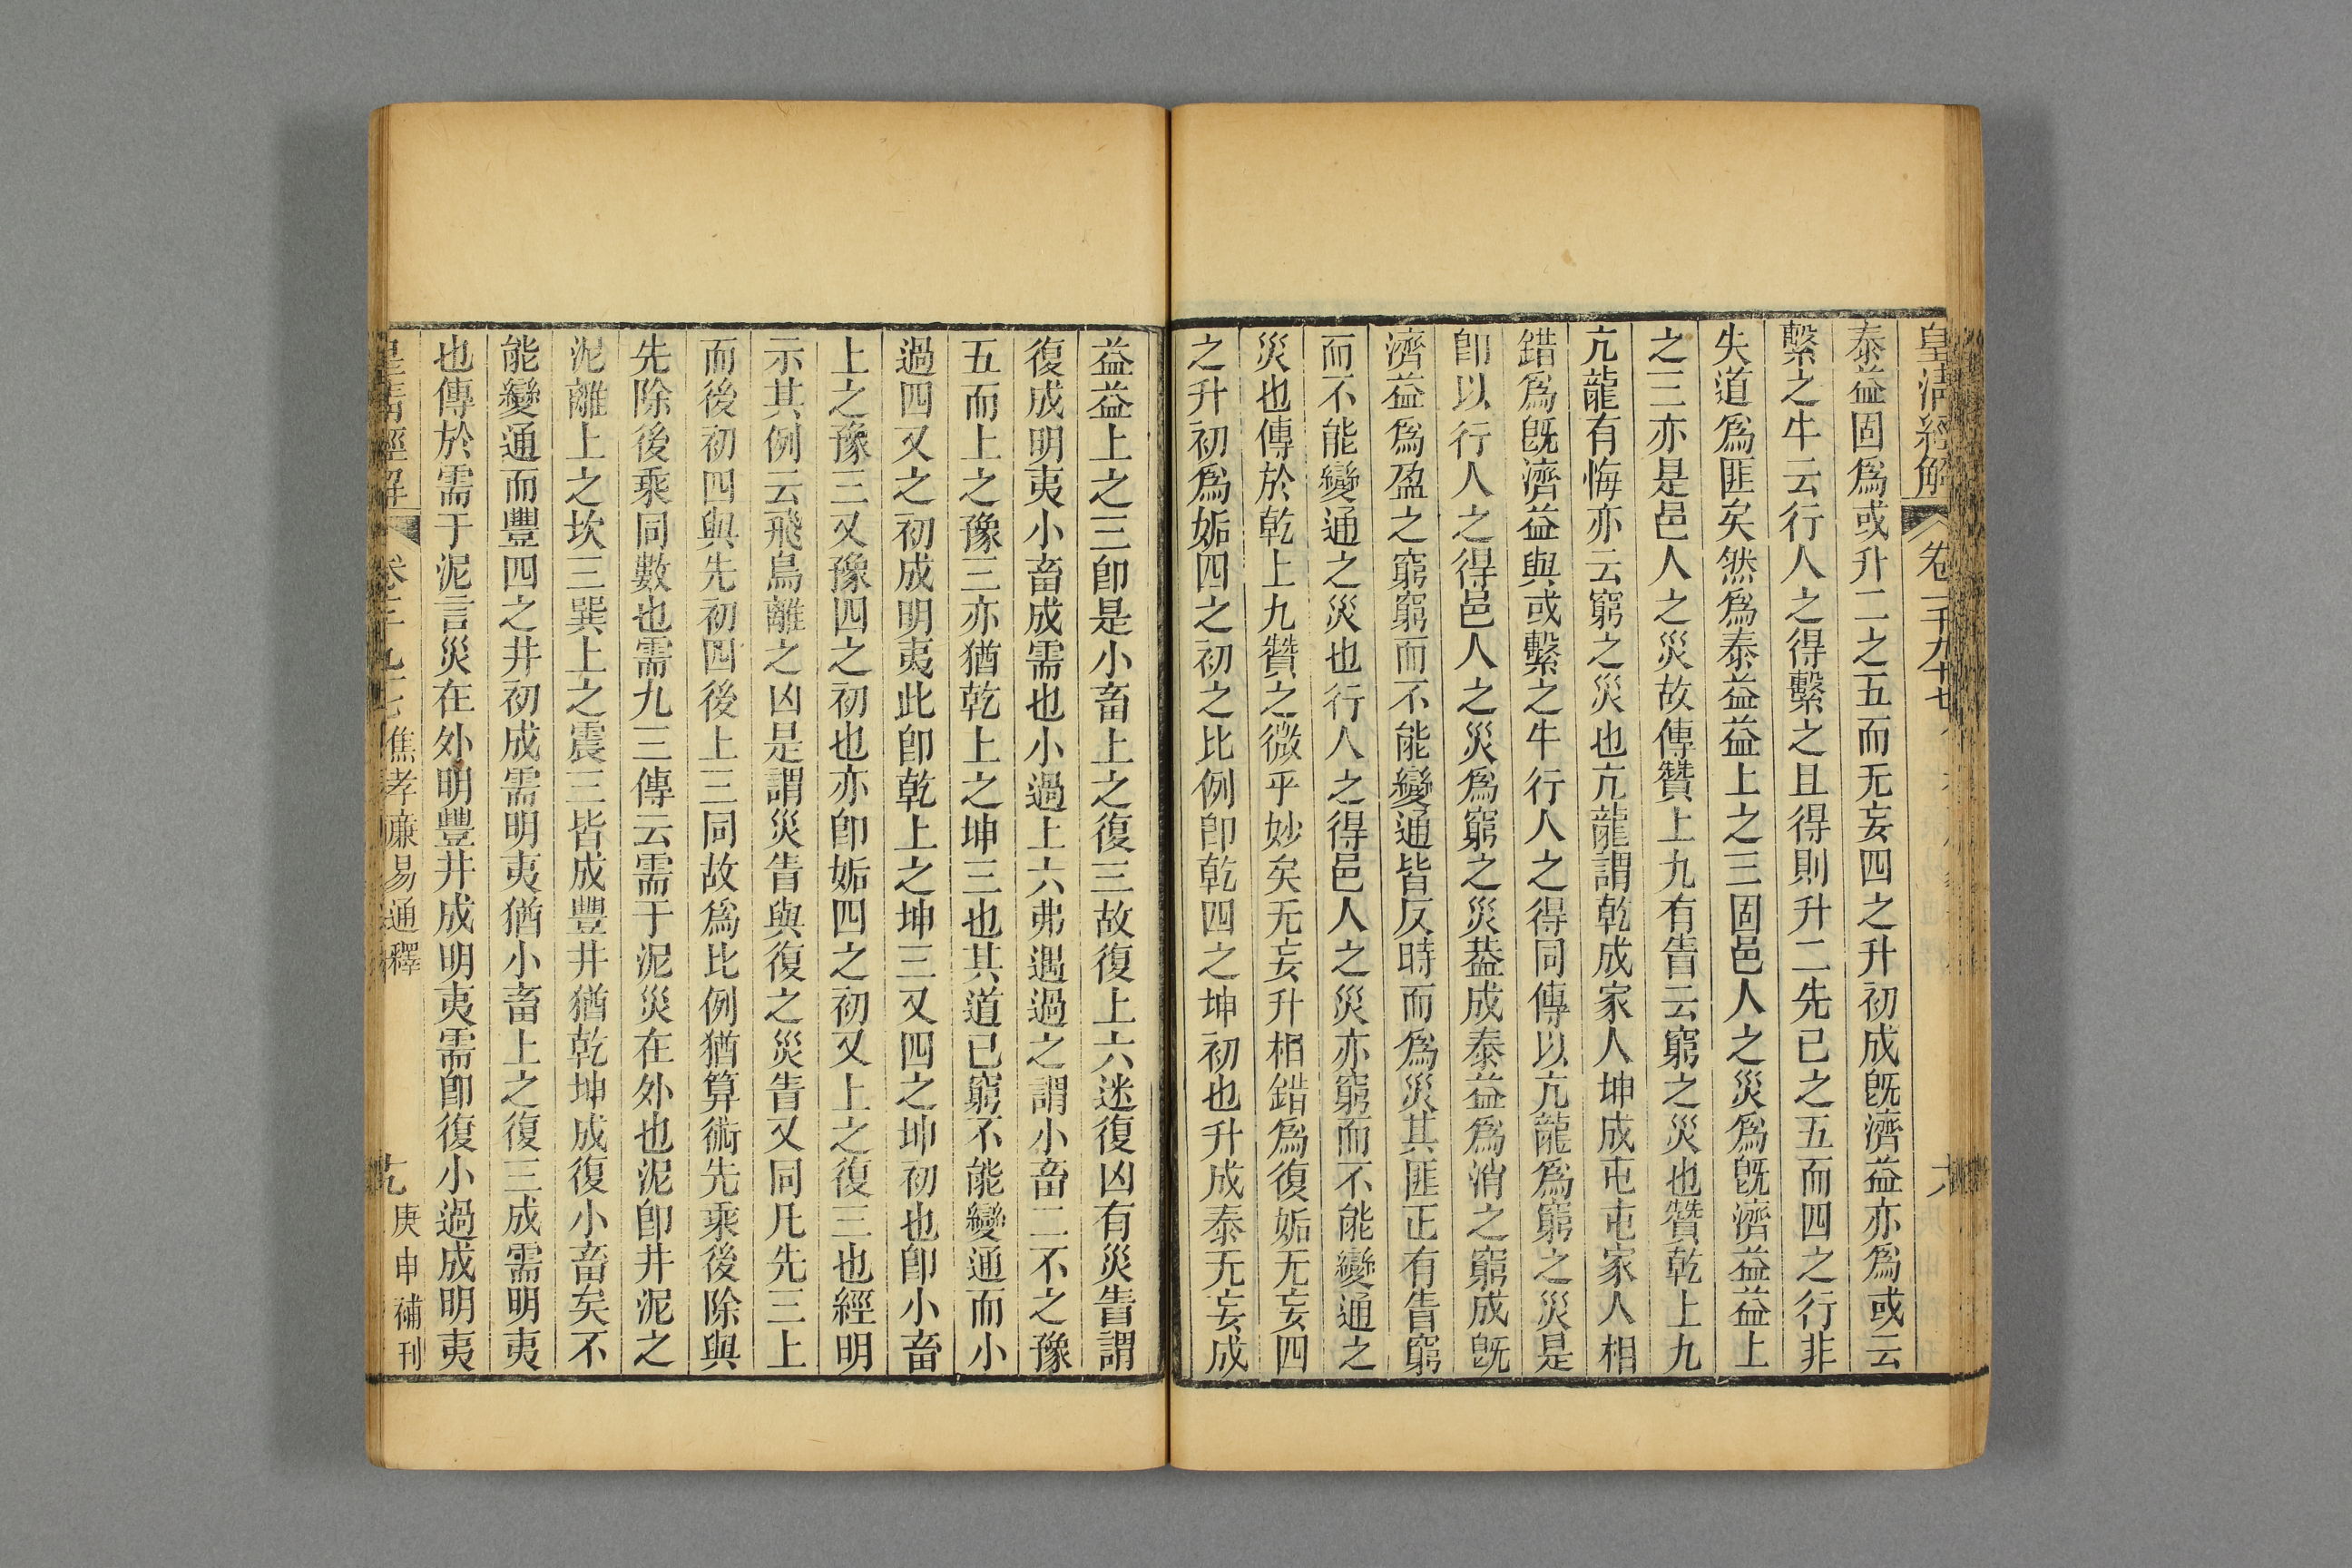 皇清經解 卷一千九十七 六
泰益固爲或升二之五而无妄四之升初成既濟益亦爲或云
繫之牛云行人之得繫之且得則升二先已之五而四之行非
失道爲匪矣然爲泰益益上之三固邑人之災爲既濟益益上
之三亦是邑人之災故傳贊上九有眚云窮之災也贊乾上九
亢龍有悔亦云窮之災也亢龍謂乾成家人坤成屯屯家人相
錯爲既濟益與或繫之牛行人之得同傳以亢龍爲窮之災是
卽以行人之得邑人之災爲窮之災葢成泰益爲消之窮成既
濟益爲盈之窮窮而不能變通皆反時而爲災其匪正有眚窮
而不能變通之災也行人之得邑人之災亦窮而不能變通之
災也傳於乾上九贊之微乎妙矣无妄升相錯爲復姤无妄四
之升初爲姤四之初之比例卽乾四之坤初也升成泰无妄成
益益上之三卽是小畜上之復三故復上六迷復凶有災眚謂
復成明夷小畜成需也小過上六弗遇過之謂小畜二不之豫
五而上之豫三亦猶乾上之坤三也其道已窮不能變通而小
過四又之初成明夷此卽乾上之坤三又四之坤初也卽小畜
上之豫三又豫四之初也亦卽姤四之初又上之復三也經明
示其例云飛鳥離之凶是謂災眚與復之災眚又同凡先三上
而後初四與先初四後上三同故爲比例猶算術先乘後除與
先除後乘同數也需九三傳云需于泥災在外也泥卽井泥之
泥離上之坎三巽上之震三皆成豐井猶乾坤成復小畜矣不
能變通而豐四之井初成需明夷猶小畜上之復三成需明夷
也傳於需于泥言災在外明豐井成明夷需卽復小過成明夷
皇清經解 卷 焦孝廉易通釋 庚申補刊